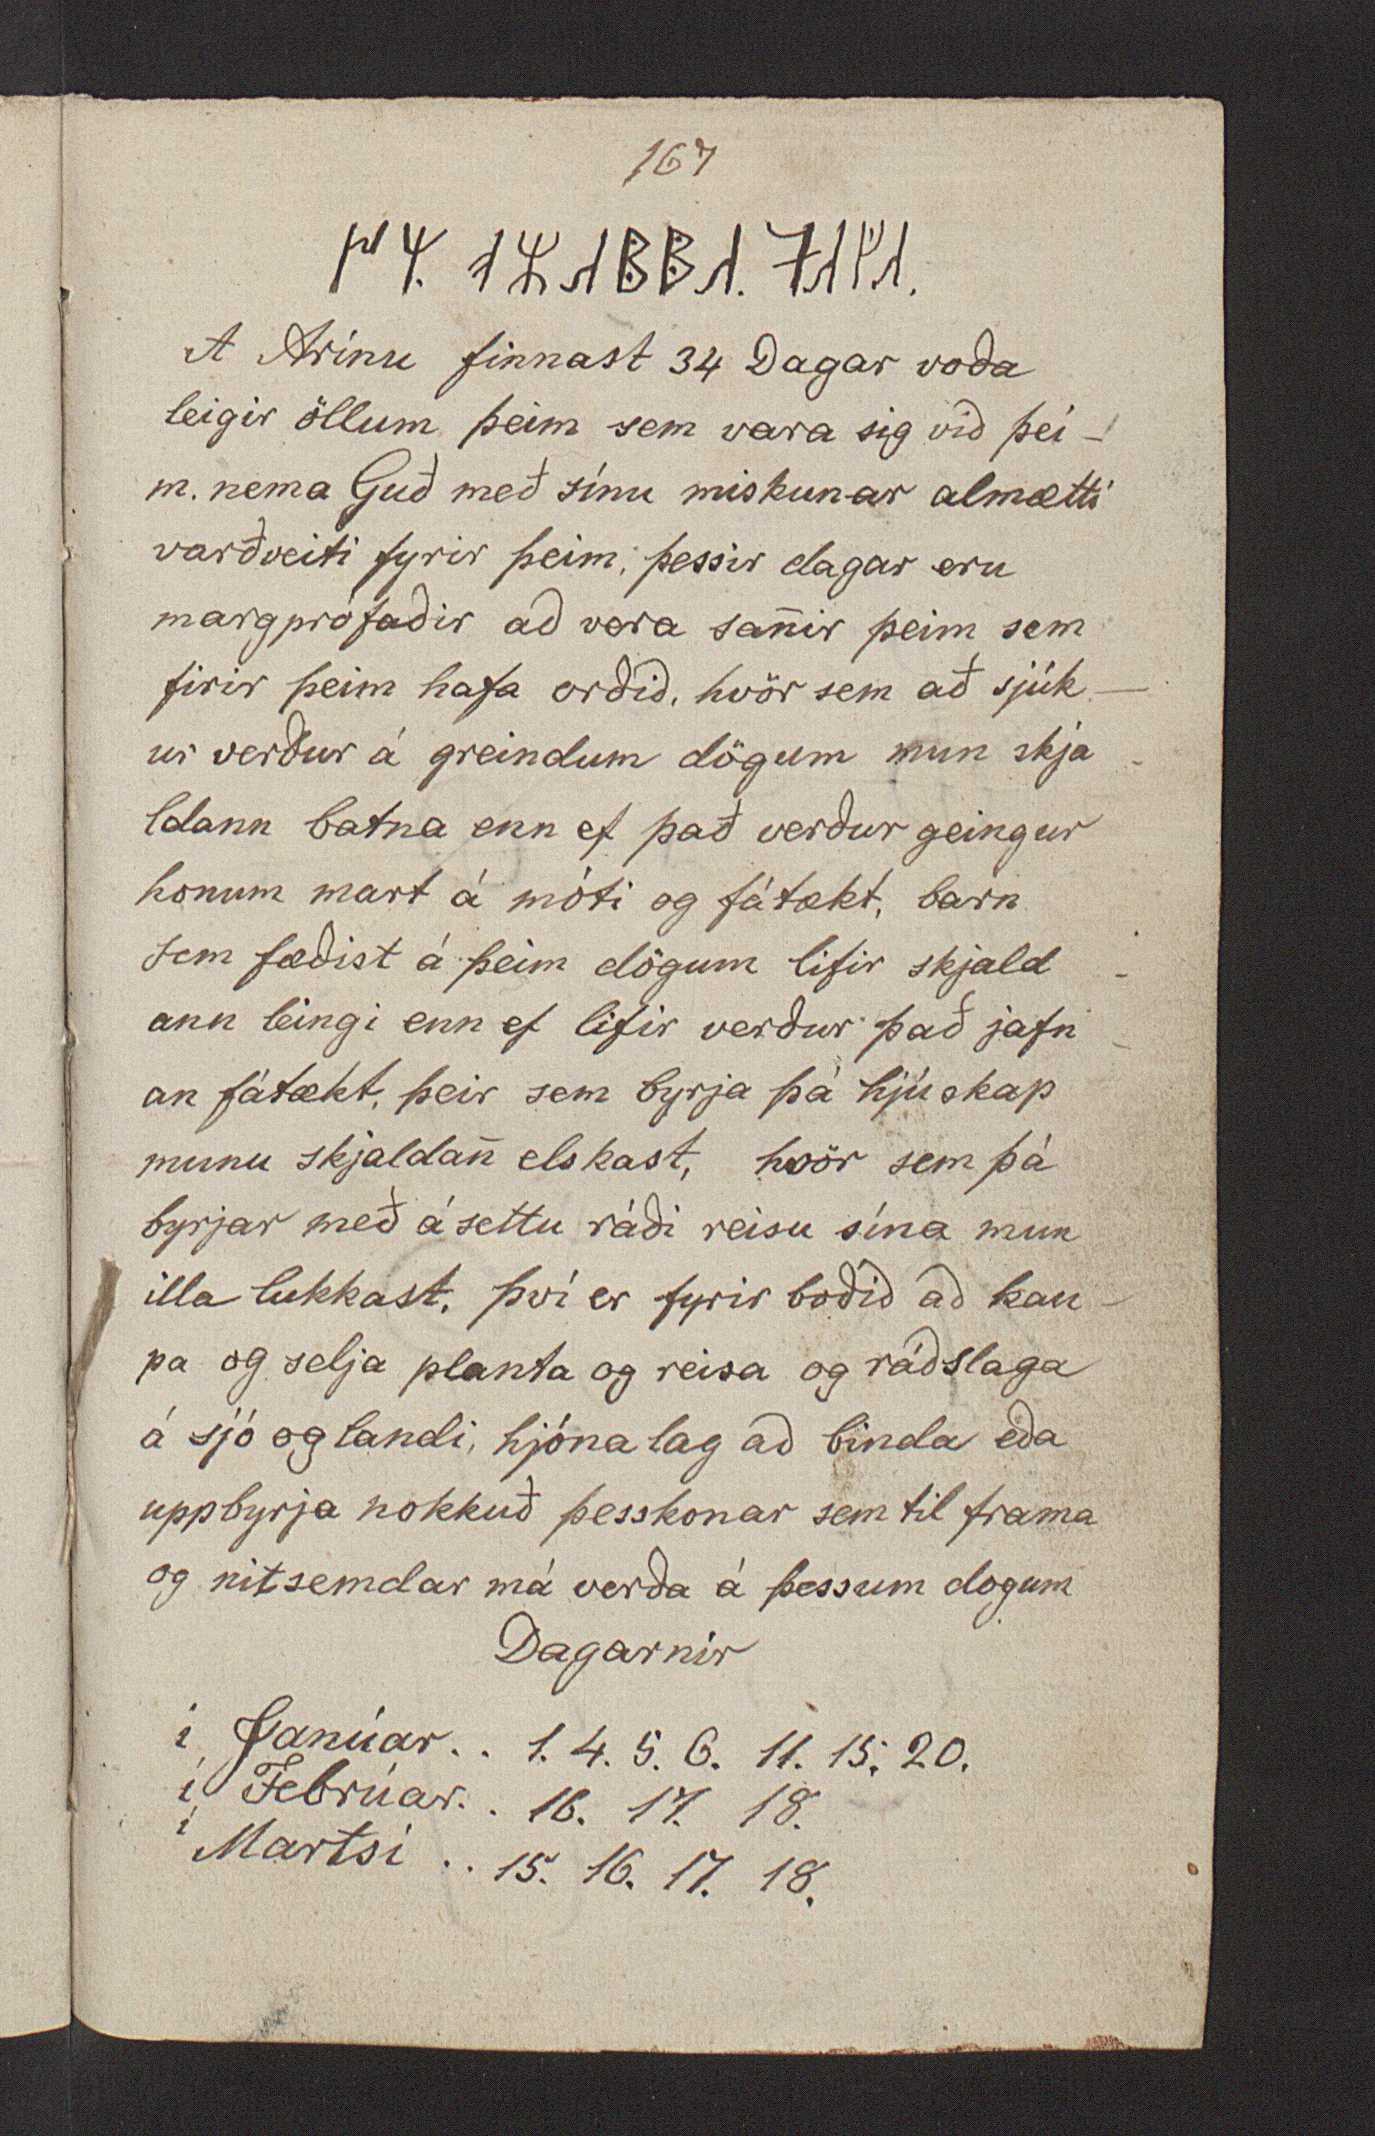 167
A Arínu finnast 34 Dagar voða
leigir öllum þeim sem vara sig við þei-
m. nema Guð með sínu miskunar almætti
varðveiti fyrir þeim, þessir dagar eru
margprófaðir að vera san̄ir þeim sem
firir þeim hafa orðið, hvör sem að sjúk-
ur verður á greindum dögum mun skja-
ldann batna enn ef það verður geingur
honum mart á móti og fátækt, barn
sem fæðist á þeim dögum lifir skjald-
ann leingi enn ef lifir verður það jafn-
an fátækt, þeir sem byrja þá hjúskap
munu skjaldan̄ elskast, hvör sem þá
byrjar með ásettu ráði reisu sína mun
illa lukkast, því er fyrir boðið að kau-
pa og selja planta og reisa og ráðslaga
á sjó og landi, hjónalag að binda eða
uppbyrja nokkuð þesskonar sem til frama
og nitsemdar má verða á þessum dogum
Dagarnir
í Janúar.. 1. 4. 5. 6. 11. 15. 20.
í Febrúar.. 16. 17. 18.
í Martsí .. 15. 16. 17. 18.